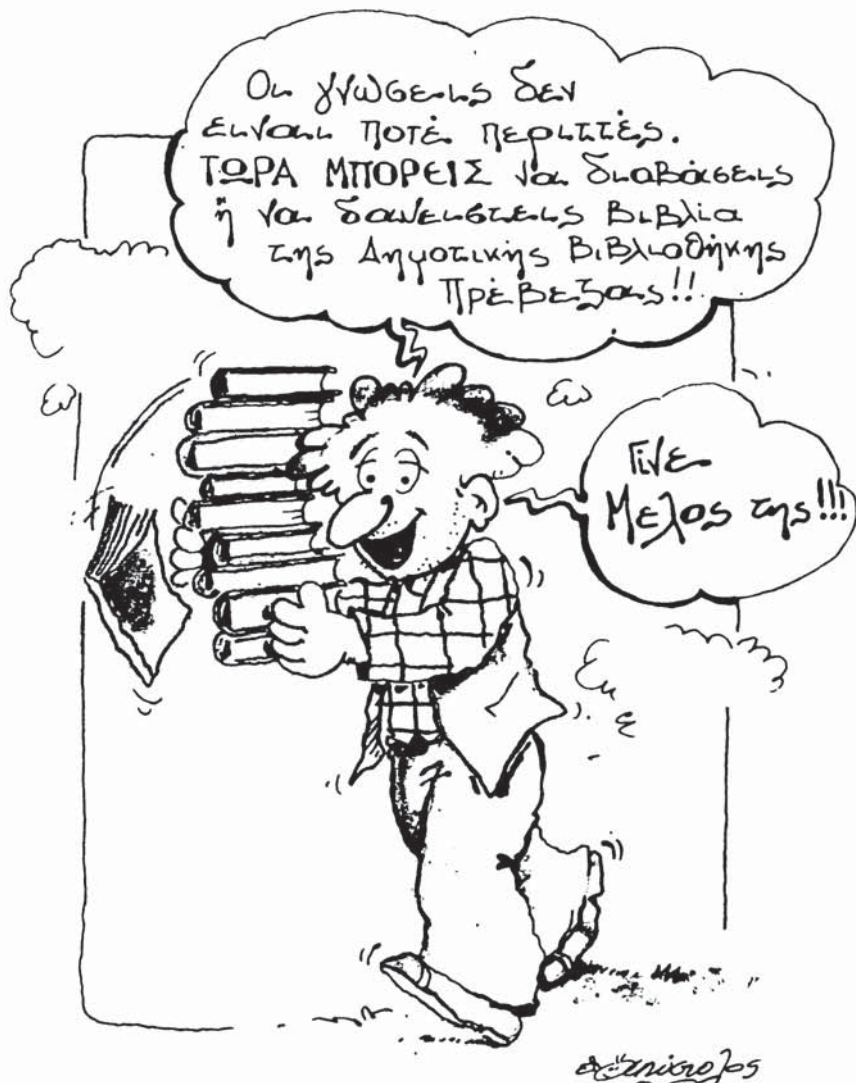 Οι γνώσεις δεν
είναι ποτέ περιττές.
ΤΩΡΑ ΜΠΟΡΕΙΣ να διαβάσεις
ή να δανειστείς βιβλία
της Δημοτικής Βιβλιοθήκης
Πρέβεζας!!
Γίνε
Μελος της!!!